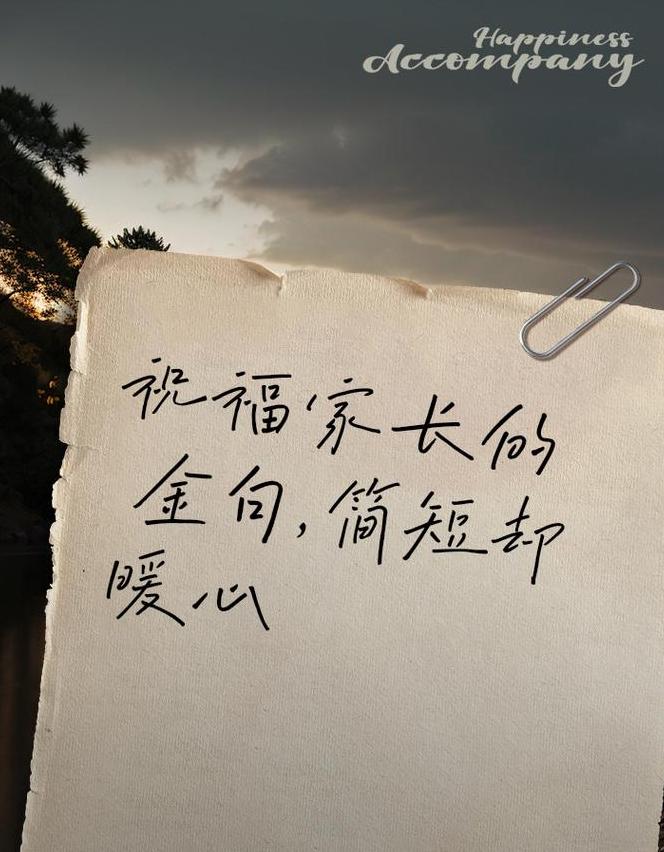 Happiness
Accompany
祝福家长的
金句,简短却
暖心